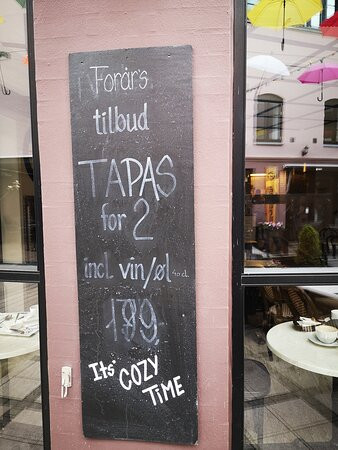 Forårs
tilbud
TAPAS
for 2
incl. vin/øl 40 cl.
199,
Its' COZY
TIME